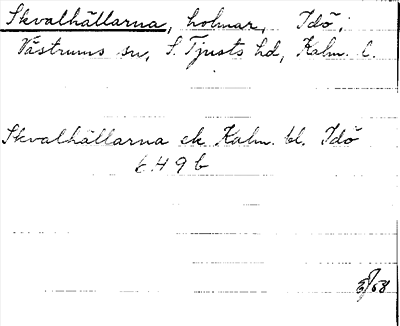 Skvalhällarna, holmar, Idö;
Västrums sn, S. Tjusts hd, Kalm. l.
Skvalhällarna ek Kalm. bl. Idö
6 49 b